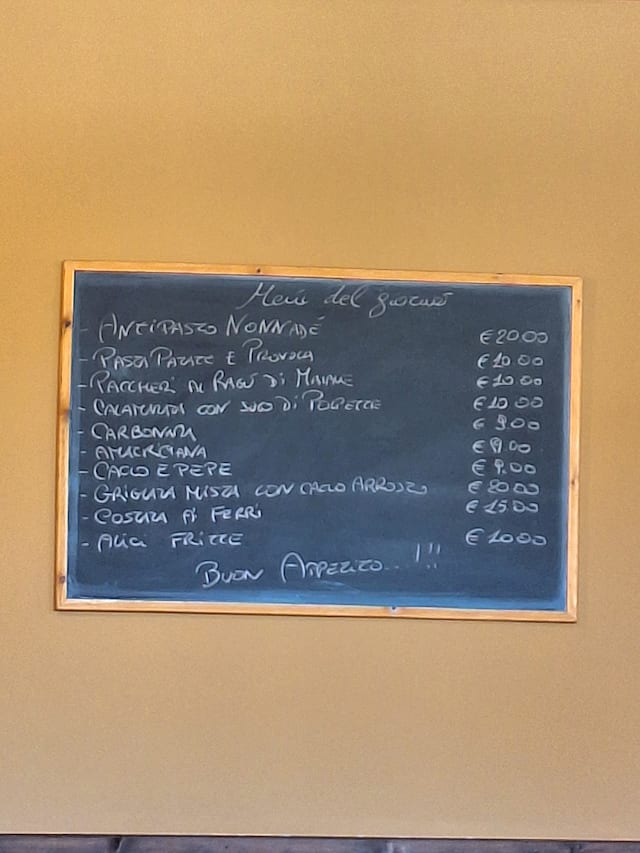 Menù del giorno
- ANTIPASTO NONNADÉ € 20.00
- PASTA PATATE E PROVOLA € 10.00
- PACCHERI AL RAGÙ DI MAIALE € 10.00
- CALAMARATA CON SUGO DI POLPETTE € 10.00
- CARBONARA € 9.00
- AMATRICIANA € 9.00
- CACIO E PEPE € 9.00
- GRIGLIATA MISTA CON CACIO ARROSTO € 20.00
- COSTATA AI FERRI € 15.00
- ALICI FRITTE € 10.00
BUON APPETITO...!!!